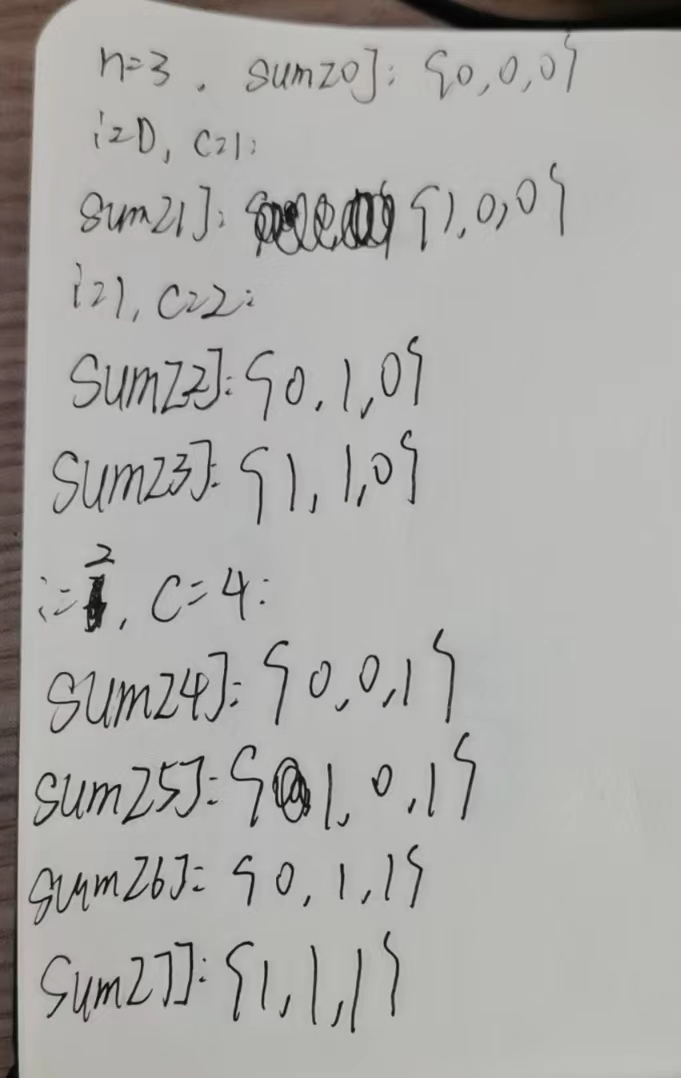 n=3, sum[0]: {0,0,0}
i=0, c=1:
sum[1]: {1,0,0}
i=1, c=2:
sum[2]: {0,1,0}
sum[3]: {1,1,0}
i=2, c=4:
sum[4]: {0,0,1}
sum[5]: {1,0,1}
sum[6]: {0,1,1}
sum[7]: {1,1,1}